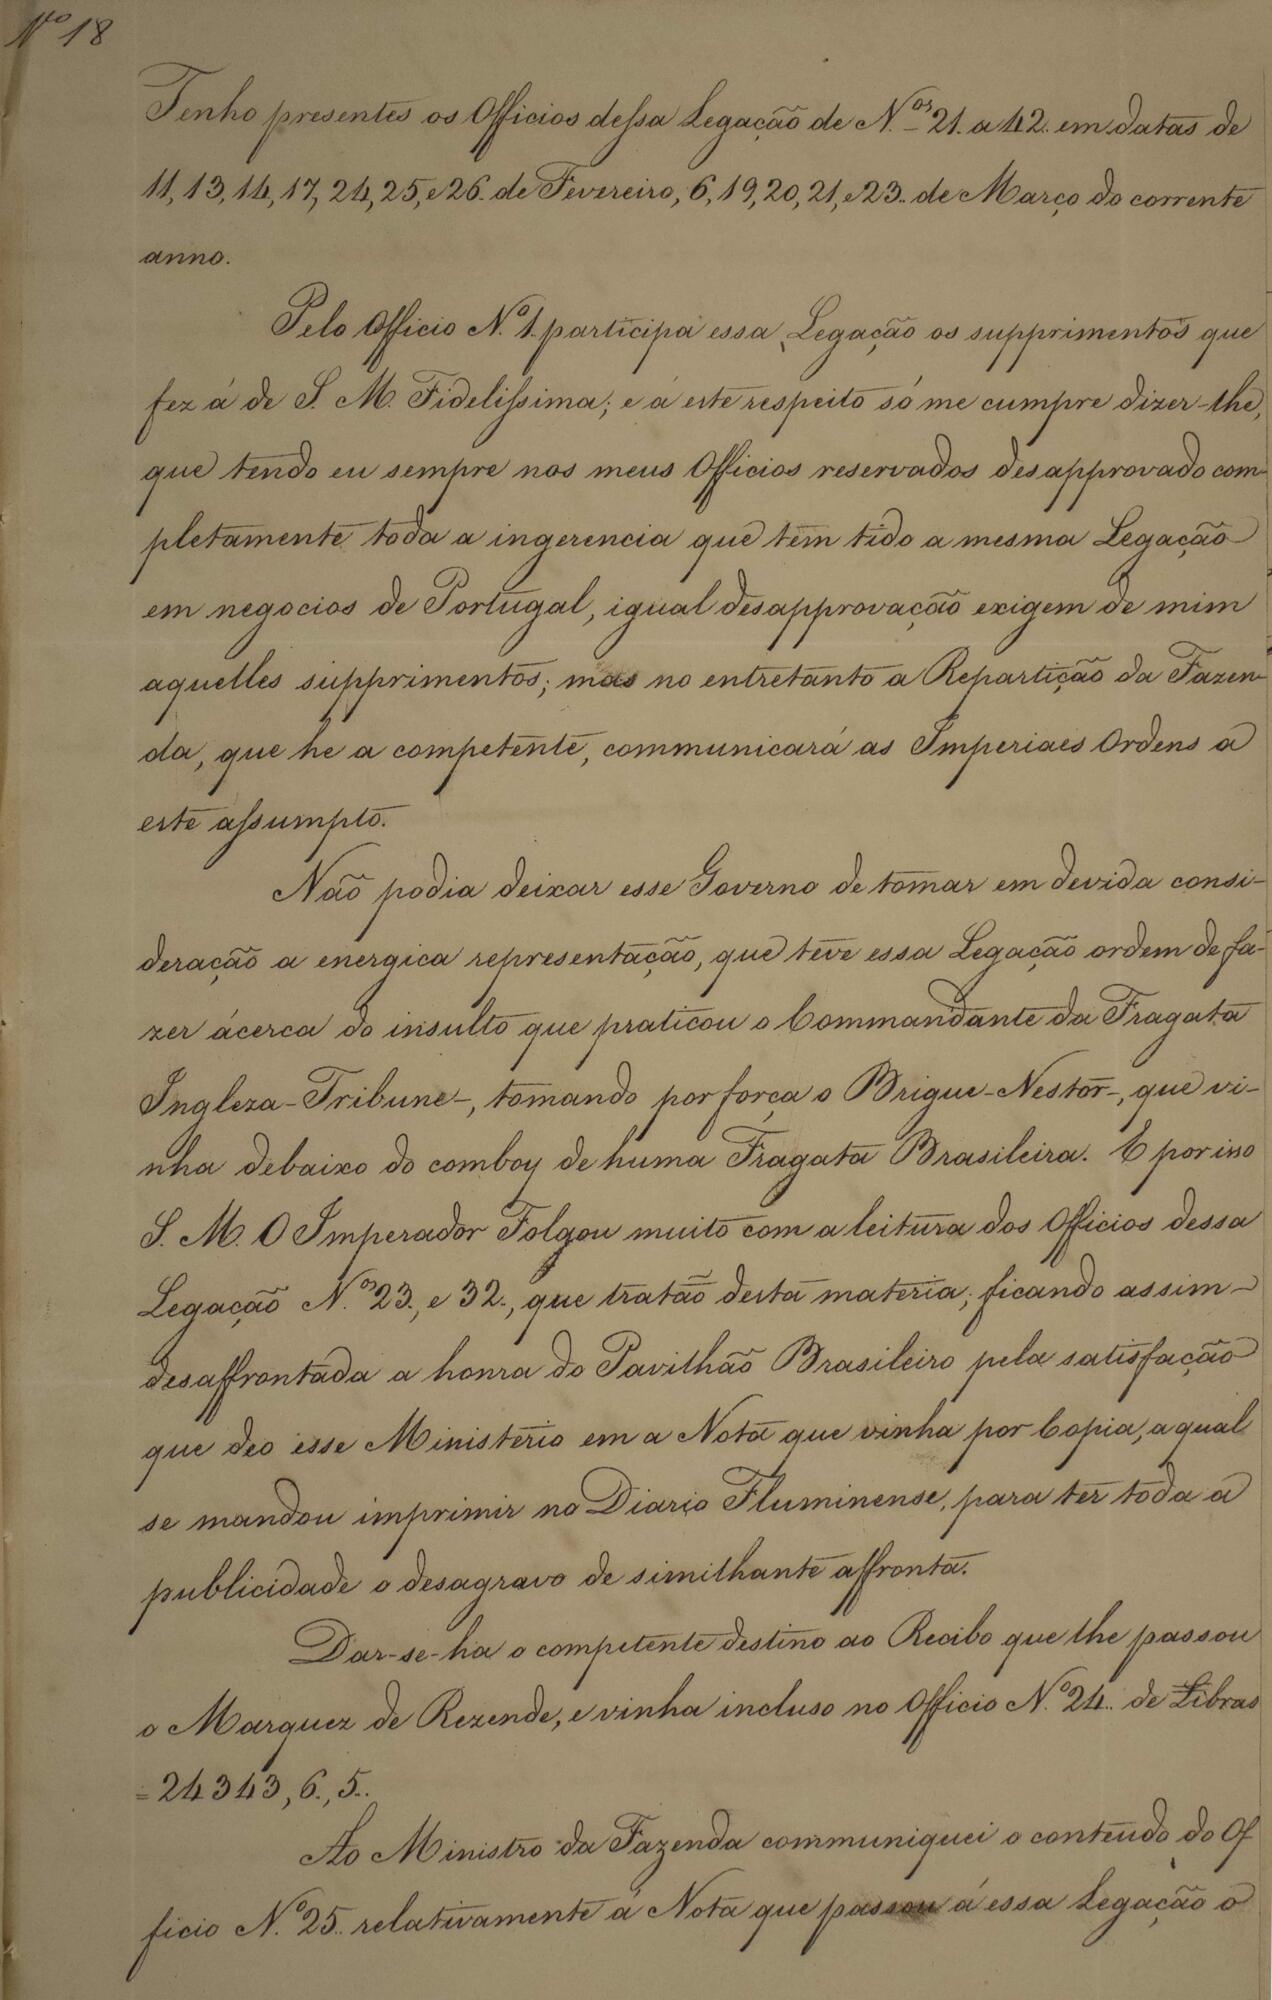 Nº 18
Tenho presentes os Officios dessa Legação de N.os 21. a 42. em datas de
11, 13, 14, 17, 24, 25, e 26. de Fevereiro, 6, 19, 20, 21, e 23.. de Março do corrente
anno.
Pelo Officio N.º 1. participa essa Legação os supprimentos que
fez á de S. M. Fidelissima; e á este respeito só me cumpre dizer-lhe,
que tendo eu sempre nos meus Officios reservados desapprovado com-
pletamente toda a ingerencia que tem tido a mesma Legação
em negocios de Portugal, igual desapprovação exigem de mim
aquelles supprimentos; mas no entretanto a Repartição da Fazen-
da, que he a competente, communicará as Imperiaes Ordens a
este assumpto.
Não podia deixar esse Governo de tomar em devida consi-
deração a energica representação, que teve essa Legação ordem de fa-
zer ácerca do insulto que praticou o Commandante da Fragata
Ingleza-Tribune-, tomando por força o Brigue-Nestor-, que vi-
nha debaixo do comboy de huma Fragata Brasileira. E por isso
S. M. O Imperador Folgou muito com a leitura dos Officios dessa
Legação N.os 23., e 32., que tratão desta materia; ficando assim
desaffrontada a honra do Pavilhão Brasileiro pela satisfação
que deo esse Ministerio em a Nota que vinha por Copia, a qual
se mandou imprimir no Diario Fluminense, para ter toda a
publicidade o desagravo de similhante affronta.
Dar-se-ha o competente destino ao Recibo que lhe passou
o Marquez de Rezende, e vinha incluso no Officio N.º 24.. de Libras
= 24343, 6., 5..
Ao Ministro da Fazenda communiquei o conteudo do Of
ficio N.º 25.. relativamente á Nota que passou á essa Legação o